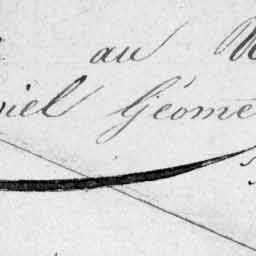 au
iel Géomé